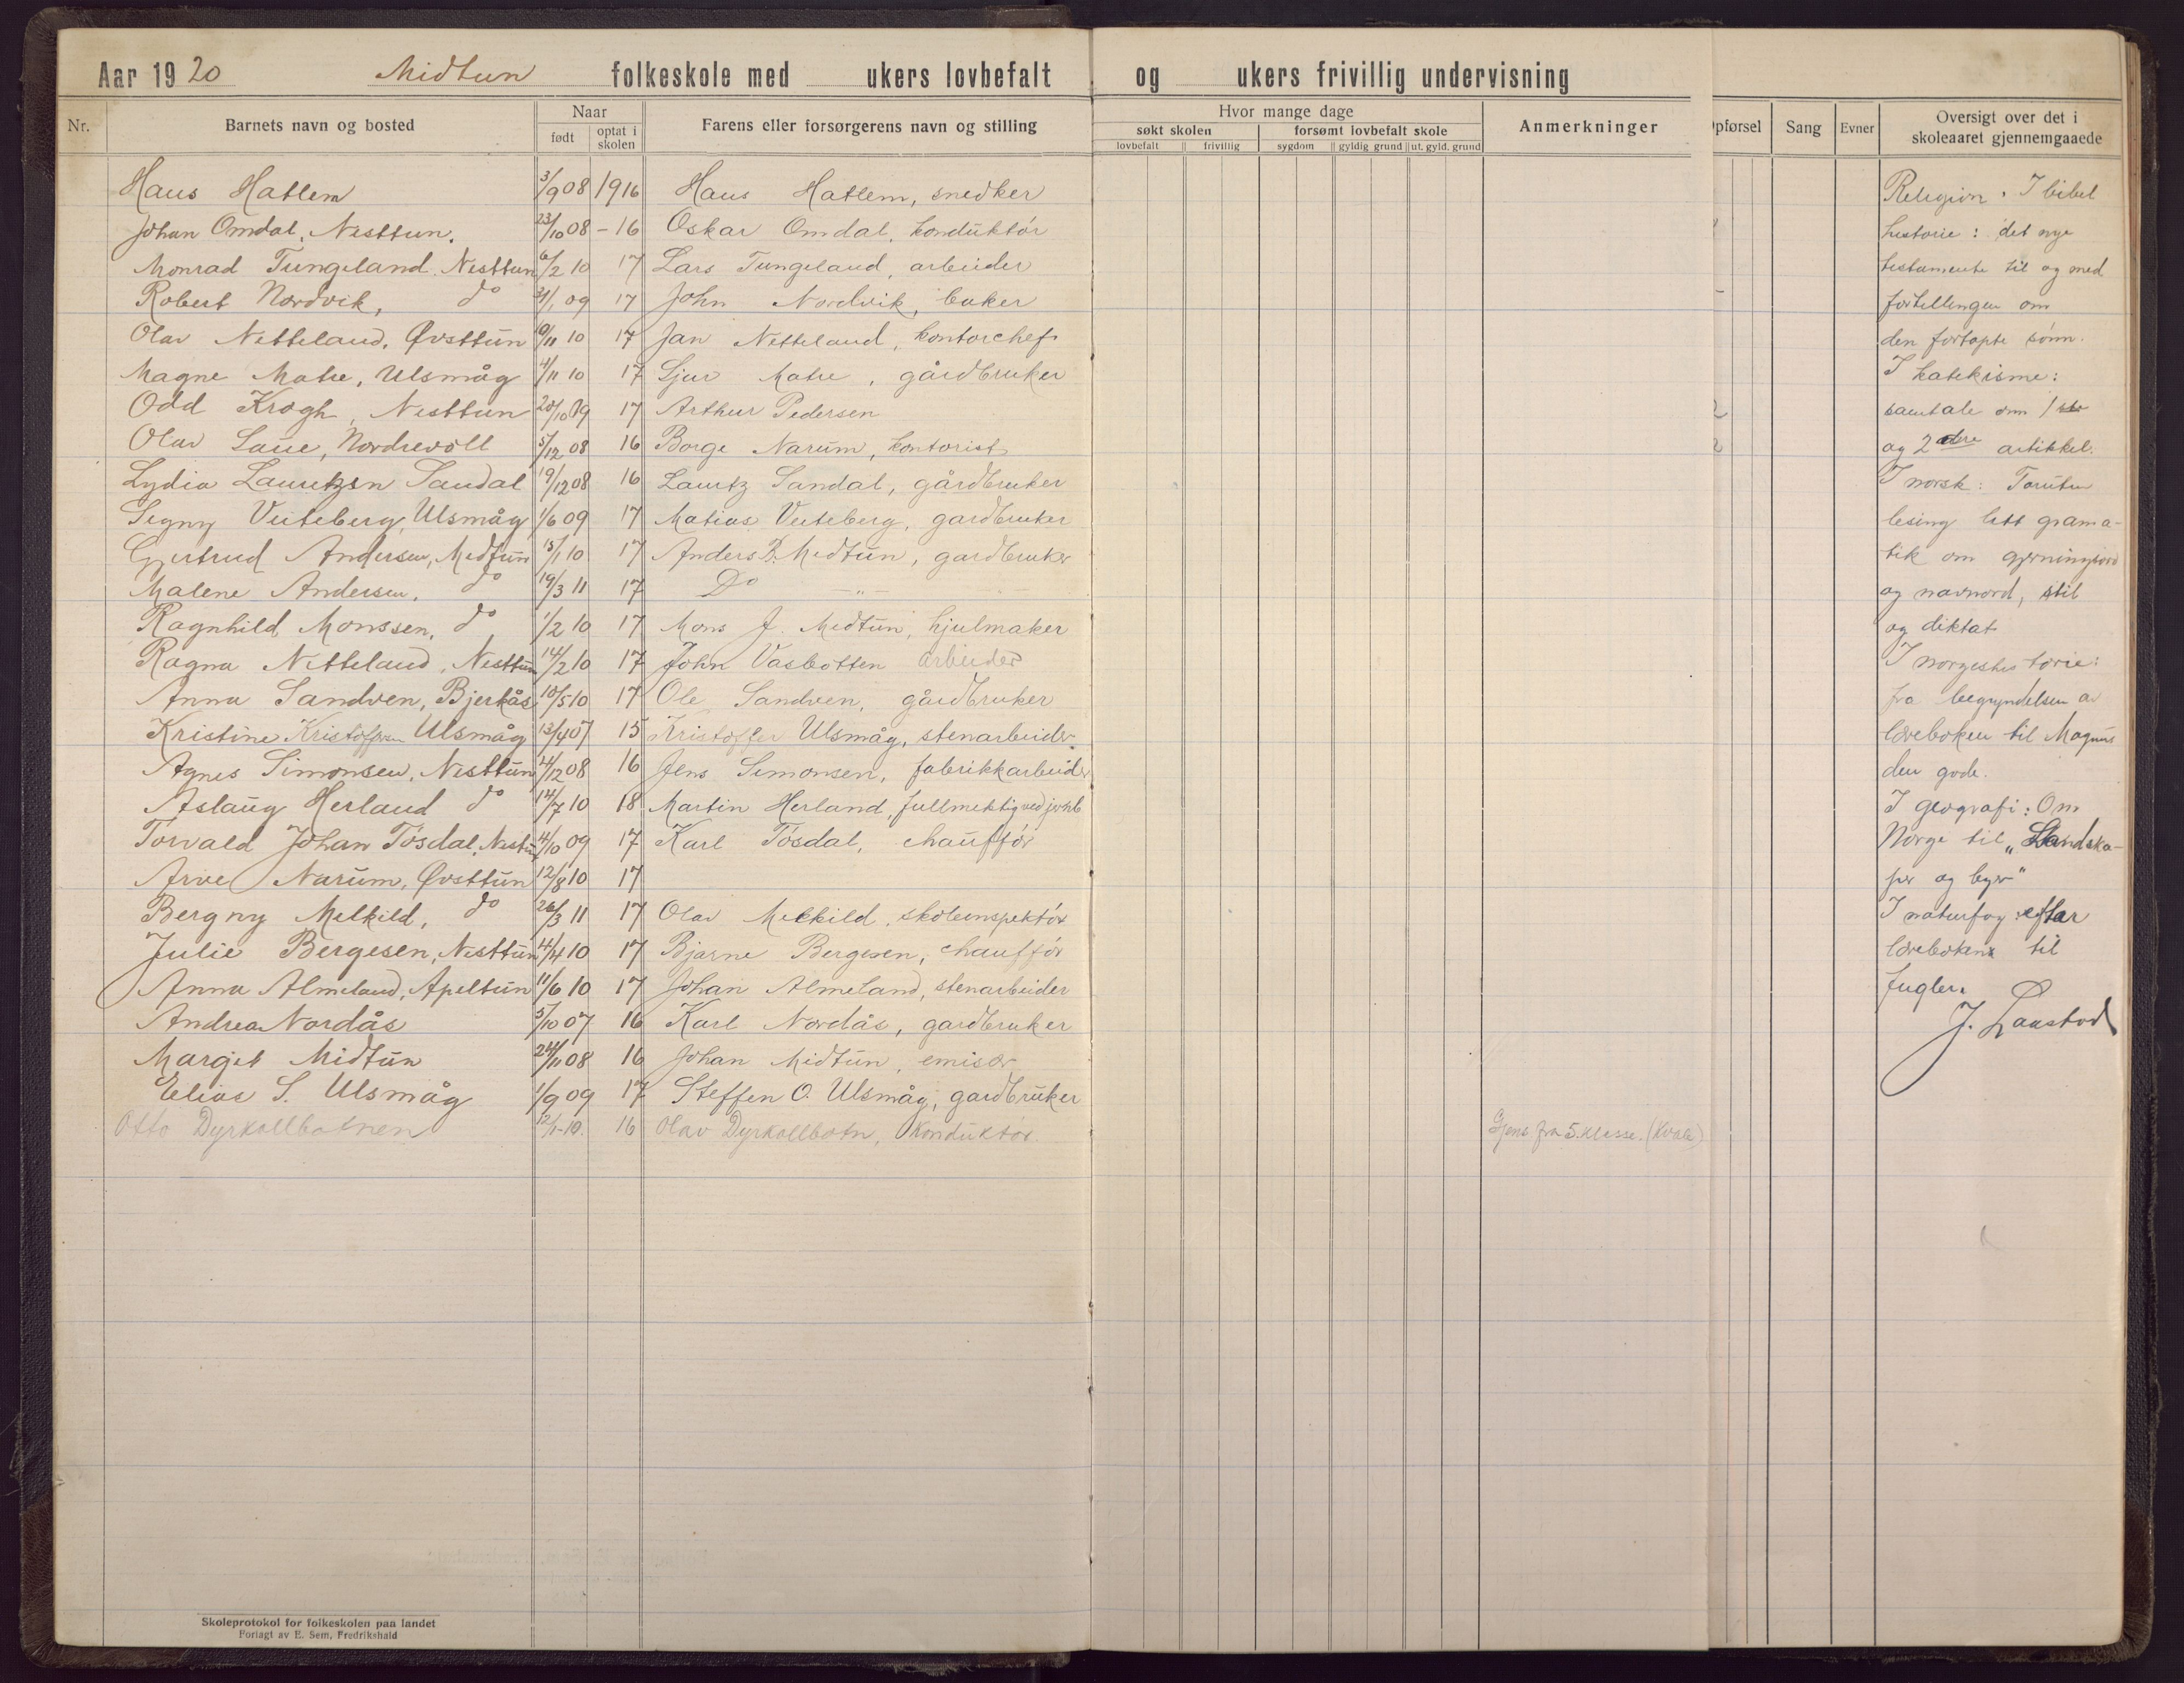 Aar 1920 Midtun folkeskole med ukers lovbefalt og ukers frivillig undervisning
Nr. Barnets navn og bosted Naar født optat i skolen Farens eller forsørgerens navn og stilling
Hvor mange dage søkt skolen lovbefalt frivillig forsømt lovbefalt skole sygdom gyldig grund ut. gyld. grund Anmerkninger
Opførsel Sang Evner Oversigt over det i skoleaaret gjennemgaaede
Hans Hatlem 3/9 08 1916 Hans Hatlem, snedker
Johan Omdal, Nesttun. 23/10 08 - 16 Oskar Omdal, konduktör
Monrad Tungeland. Nesttun 6/2 10 17 Lars Tungeland, arbeider
Robert Nordvik, do 31/1 09 17 John Nordvik, baker
Olav Netteland, Øvsttun 10/11 10 17 Jan Netteland, kontorchef
Magne Matre, Ulsmåg 4/11 10 17 Sjur Matre, gårdbruker
Odd Krogh, Nesttun 20/10 09 17 Arthur Pedersen
Olav Laue, Nordrevoll 5/12 08 16 Borge Narum, kontorist
Lydia Lauritzen Sandal 19/12 08 16 Lauritz Sandal, gårdbruker
Signy Veiteberg, Ulsmåg 1/6 09 17 Matias Veiteberg, gardbruker
Gjertrud Andersen, Midtun 15/1 10 17 Anders B. Midtun, gardbruker
Malene Andersen, do 19/3 11 17 Do - " -
Ragnhild Monssen, do 1/2 10 17 Mons J. Midtun, hjulmaker
Ragna Netteland, Nesttun 14/2 10 17 John Vasbotten arbeider
Anna Sandven, Bjerkås 10/5 10 17 Ole Sandven, gårdbruker
Kristine Kristoffersen Ulsmåg 13/4 07 15 Kristoffer Ulsmåg, stenarbeider
Agnes Simonsen, Nesttun 4/12 08 16 Jens Simonsen, fabrikkarbeider
Aslaug Herland do 14/7 10 18 Martin Herland, fullmektig ved jernb
Torvald Johan Tösdal, Nesttun 4/10 09 17 Karl Tösdal, chaufför
Arve Narum, Øvsttun 12/8 10 17
Bergny Melkild, do 26/3 11 17 Olav Melkild, skoleinspektör
Julie Bergesen, Nesttun 4/4 10 17 Bjarne Bergesen, chaufför
Anna Almeland, Apeltun 11/6 10 17 Johan Almeland, stenarbeider
Andrea Nordås 5/10 07 16 Karl Nordås, gardbruker
Margit Midtun 24/11 08 16 Johan Midtun, emisær
Elias S. Ulsmåg 1/9 09 17 Steffen O. Ulsmåg, gardbruker
Otto Dyrkollbotnen 12/1-10. 16 Olav Dyrkollbotn, Konduktør. Gjens. fra 5. klasse. (Kvale)
2
2
Religion: I bibel
historie: det nye
testamente til og med
fortellingen om
den fortapte sönn.
I katekisme:
samtale om 1ste
og 2dre artikkel.
I norsk: Foruten
lesing litt grama-
tik om gjerningsord
og navnord, stil
og diktat
I norgeshistorie:
fra begyndelsen av
læreboken til Magnus
den gode.
I geografi: Om
Norge til „Landska-
per og byer"
I naturfag: efter
læreboken til
fugler.
J. Laastad
Skoleprotokol for folkeskolen paa landet
Forlagt av E. Sem, Fredrikshald